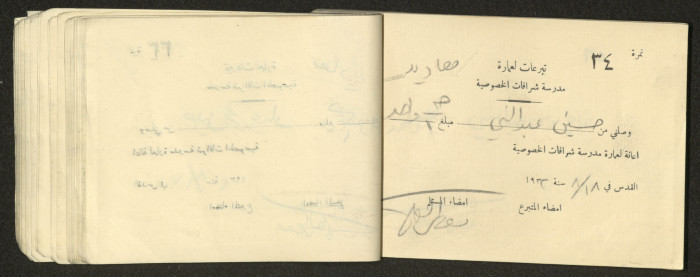 نمرة ٣٤
تبرعات لعمارة
مدرسة شرافات الخصوصية
وصلني من حسين عبد النبي مبلغ واحد
اعانة لعمارة مدرسة شرافات الخصوصية
القدس في ٨/١٨ سنة ١٩٣٣
امضاء المتبرع امضاء المستلم